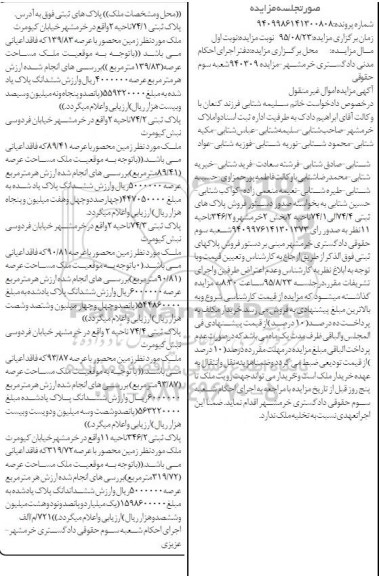 صورتجلسه مزایده
شماره پرونده:۹۴۰۹۹۸۶۱۴۱۳۰۰۸۰۸
زمان برگزاری مزایده:۹۵/۰۸/۲۳ نوبت مزایده:نوبت اول
سال مزایده: محل برگزاری مزایده:دفتر اجرای احکام
مدنی دادگستری خرمشهر -مزایده ۹۴۰۳۰۹ شعبه سوم
حقوقی
آگهی مزایده اموال غیر منقول
درخصوص دادخواست خانم سلیمه شتایی فرزند کنعان با
وکالت آقای ابراهیم دادک به طرفیت اداره ثبت اسناد واملاک
خرمشهر -صاحب شتایی -سلیمه شتایی -عباس شتایی -مکیه
شتایی -محمود شتایی -نوریه شتایی -فوزیه شتایی -عواد
شتایی -صادق شتایی -فرشته سعادت -فرید شتایی -خیریه
حسین شتایی به خواسته صدور دستور فروش پلاک های
حقوقی دادگستری خرمشهر مبنی بر دستور فروش پلاکهای
ثبتی فوق الذکر از طریق ارجاع به کارشناس وتعیین قیمت وبا
توجه به ابلاغ نظریه کارشناس وعدم اعتراض طرفین واجرای
تشریفات مقرر در جلسه ۹۵/۸/۲۳ ساعت ۸:۳۰ به مزایده
گذاشته میشود که مزایده از قیمت کارشناسی شروع وبه
بالاترین مبلغ پیشنهادی به فروش می رسد خریدار مکلف به
پرداخت ده درصد(۱۰ درصد)از قیمت پیشنهادی فی
المجلس والباقی ظرف مدت یک ماه می باشد که در صورت عدم
پرداخت الباقی مبلغ مزایده در مهلت مقرر ده درصد(۱۰ درصد
)از قیمت تودیعی ضبط می گردد وضمنا هزینه نقل وانتقال به
عهده خریدار ملک است وخریدار می تواند جهت رویت ملک تا
پنج روز قبل از تاریخ مزایده با مراجعه به اجرای احکام شعبه
سوم حقوقی دادگستری خرمشهر اقدام نماید.ضمنا این
اجرا تعهدی نسبت به تخلیه ملک ندارد.
((محل ومشخصات ملک)) پلاک های ثبتی فوق به آدرس:
پلاک ثبتی ۷۴/۱ ناحیه ۲ واقع در خرمشهر خیابان کیومرث
ملک مورد نظر زمین محصور با عرصه ۱۳۹/۸۳ که فاقد اعیانی
می باشد ((باتوجه به موقعیت ملک مساحت
عرصه(۱۳۹/۸۳ مترمربع ))بررسی های انجام شده ارزش
هر متر مربع عرصه ۴۰۰۰۰۰۰ ریال وارزش ششدانگ پلاک یاد
شده به مبلغ ۵۵۹۳۲۰۰۰۰(پانصد وپنجاه ونه میلیون وسیصد
وبیست هزار ریال)ارزیابی واعلام میگردد.))
پلاک ثبتی ۷۴/۲ ناحیه ۲ واقع در خرمشهر خیابان فردوسی
نبش کیومرث
ملک مورد نظر زمین محصور با ۸۹/۴۱ که فاقد اعیانی
می باشد((باتوجه به موقعیت ملک مساحت عرصه
(۸۹/۴۱ مترمربع)بررسی های انجام شده ارزش هر متر مربع
عرصه ۵۰۰۰۰۰۰ ریال وارزش ششدانگ پلاک یاد شده به
مبلغ ۴۴۷۰۵۰۰۰۰(چهارصد وچهل وهفت میلیون وپنجاه
هزار ریال)ارزیابی واعلام میگردد.
پلاک ثبتی ۷۴/۳ ناحیه ۲ واقع در خرمشهر خیابان فردوسی
نبش کیومرث
ملک مورد نظر زمین محصور با عرصه ۹۰/۸۱ که فاقد اعیانی
می باشد((باتوجه به موقعیت ملک مساحت عرصه
(۹۰/۸۱ مترمربع))بررسی های انجام شده ارزش هر متر مربع
عرصه ۶۰۰۰۰۰۰ ریال وارزش ششدانگ پلاک یادشده به مبلغ
۵۴۴۸۶۰۰۰۰(پانصد وچهل وچهار میلیون وهشتصد وشصت
هزار ریال)ارزیابی واعلام میگردد.))
پلاک ثبتی ۷۴/۴ ناحیه ۲ واقع در خرمشهر خیابان فردوسی
نبش کیومرث
ملک مورد نظر زمین محصور با عرصه ۹۳/۸۷ که فاقد اعیانی
می باشد((باتوجه به موقعیت ملک مساحت عرصه
(۹۳/۸۷ مترمربع))بررسی های انجام شده ارزش هر متر مربع
عرصه ۶۰۰۰۰۰۰ ریال وارزش ششدانگ پلاک یادشده مبلغ
۵۶۳۲۲۰۰۰۰(پانصد وشصت وسه میلیون ودویست وبیست
هزار ریال)ارزیابی واعلام میگردد.))
پلاک ثبتی ۳۴۶/۲ ناحیه ۱۱ واقع در خرمشهر خیابان کیومرث
ملک مورد نظر زمین محصور با عرصه ۳۱۹/۷۲ که فاقد اعیانی
می باشد((باتوجه به موقعیت ملک مساحت عرصه
(۳۱۹/۷۲ مترمربع)بررسی های انجام شده ارزش هر متر مربع
عرصه ۵۰۰۰۰۰۰ ریال وارزش ششدانگ پلاک یادشده به
مبلغ ۱۵۹۸۶۰۰۰۰۰(یک میلیارد پانصد ونود وهشت میلیون
وششصد وهزار ریال)ارزیابی واعلام میگردد.))۷۲۱/م الف
اجرای احکام شعبه سوم حقوقی دادگستری خرمشهر -
عزیزی